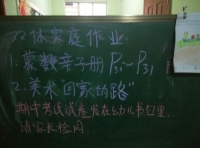 双休家庭作业:
1. 蒙数亲子册 P31~P31
2. 美术"回家的路"
期中考试试卷发在幼儿书包里,
请家长检阅